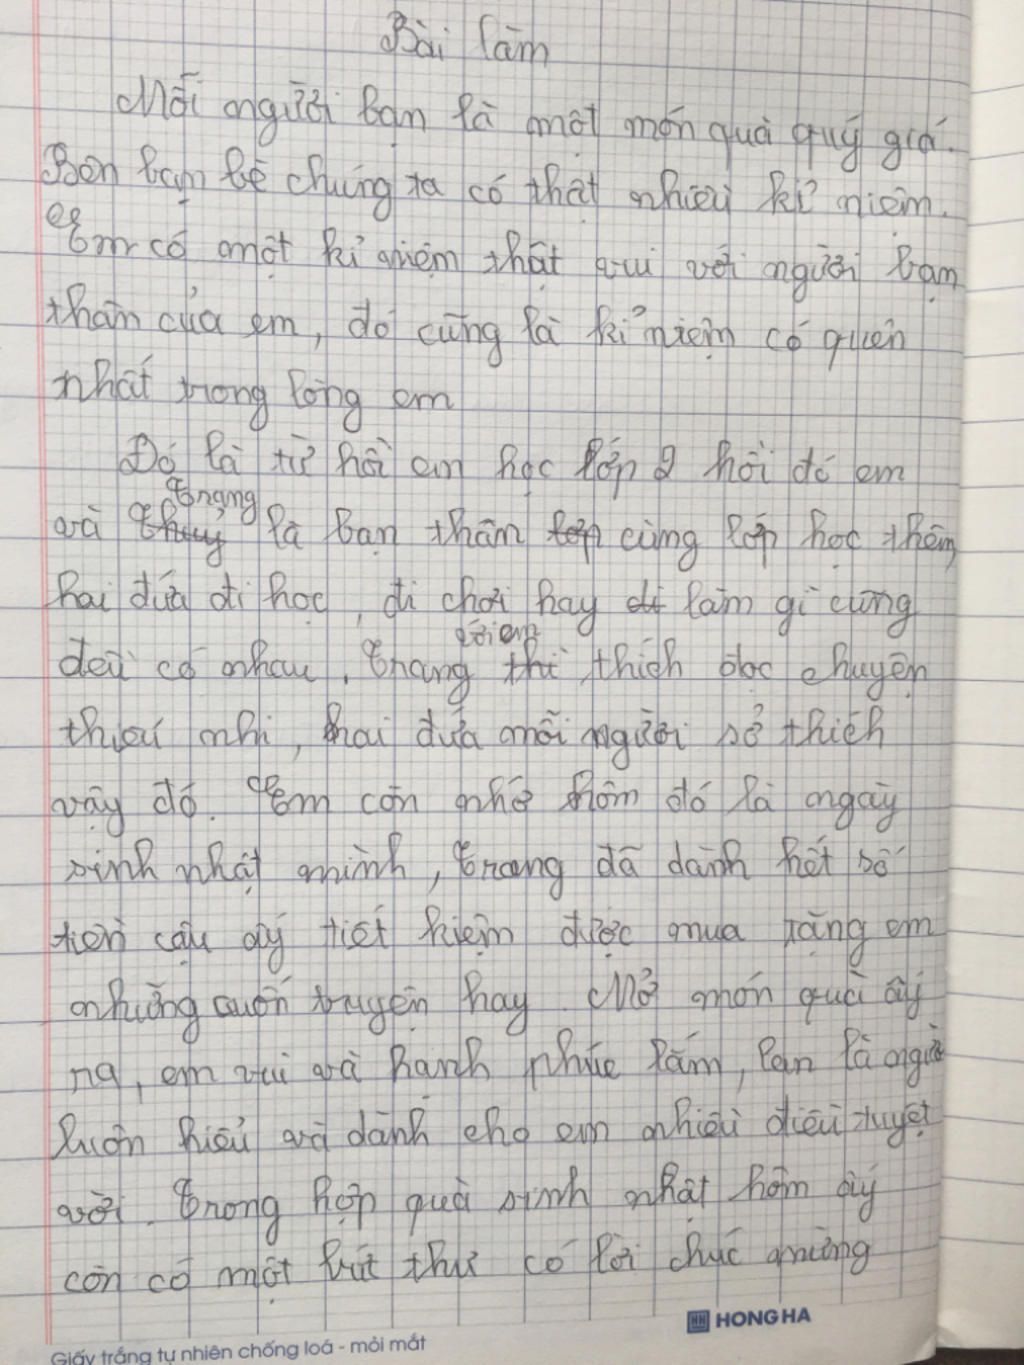 Bài làm
Mỗi người bạn là một món quà quý giá.
Bên bạn bè chúng ta có thật nhiều kỉ niệm.
Em có một kỉ niệm thật vui với người bạn
thân của em, đó cũng là kỉ niệm có quên
nhất trong lòng em
Đó là từ hồi em học lớp 2 hồi đó em
Trang
và Thuỷ là bạn thân lớp cùng lớp học thêm
hai đứa đi học, đi chơi hay đi làm gì cũng
với em
đều có nhau. Trang thì thích đọc chuyện
thiếu nhi, hai đứa mỗi người sở thích
vậy đó. Em còn nhớ hôm đó là ngày
sinh nhật mình, Trang đã dành hết số
tiền cậu ấy tiết kiệm được mua tặng em
những cuốn truyện hay. Mở món quà ấy
ra, em vui và hạnh phúc lắm, Lan là người
luôn hiểu và dành cho em nhiều điều tuyệt
vời. Trong hộp quà sinh nhật hôm ấy
còn có một bức thư có lời chúc mừng
HONG HA
Giấy trắng tự nhiên chống loá - mỏi mắt